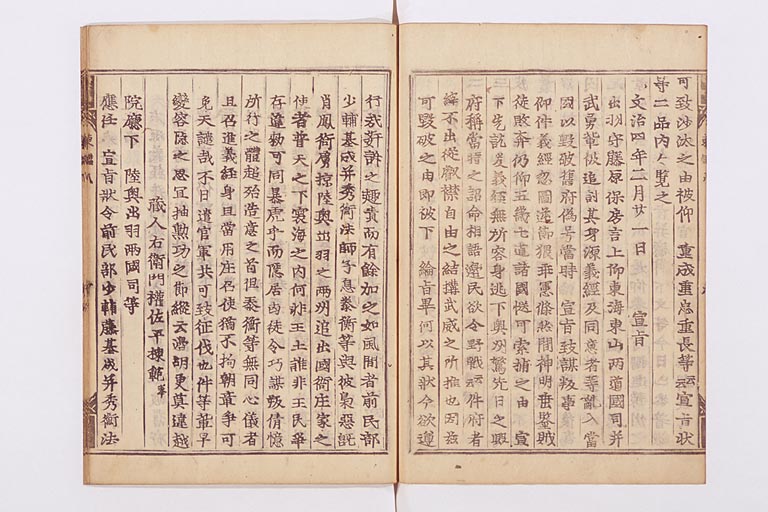 可致沙汰之由被仰 重成重忠重長等云云宣旨状
等二品内々覧之
文治四年二月廿一日 宣旨
出羽守藤原保房言上抑東海東山兩道國司并
武勇輩偏追討其身源義經及同意者等亂入當
國以毀破舊府偽号當時 宣旨致謀叛事
仰件義經忽圖逆節猥乖憲條然間神明垂鑒賊
徒敗奔仍仰五畿七道諸國慥可索捕之由 宣
下先訖爰義經無所容身逃下奥州齎先日之毀
府稱當時之詔命相語邊民欲令野戰云云件府者
縡不出從叡襟自由之結搆武威之所推也因茲
可毀破之由即被下 綸旨畢何以其狀今欲遵
行哉奸訴之趣責而有餘加之如風聞者前民部
少輔基成并秀衡法師子息泰衡等與彼梟惡詑
肖鳳銜虜掠陸奥出羽之兩州追出國衙庄家之
使者普天之下雲海之内何非王土誰非王民乎
存違勅可同暴虎乎而隱居逆徒令巧謀叛倩憶
所行之體起殆浩意之首但泰衡等無同心儀者
且召進義經身且常用庄召使猶不拘朝章爭可
免天譴哉不日遣官軍共可致征伐也件等輩早
變容隱之思宜抽勲功之節縱云濳胡更莫違越
藏人右衛門權佐平棟範奉
院廳下 陸奥出羽兩國司等
應任 宣旨狀令前民部少輔藤基成并秀衡法